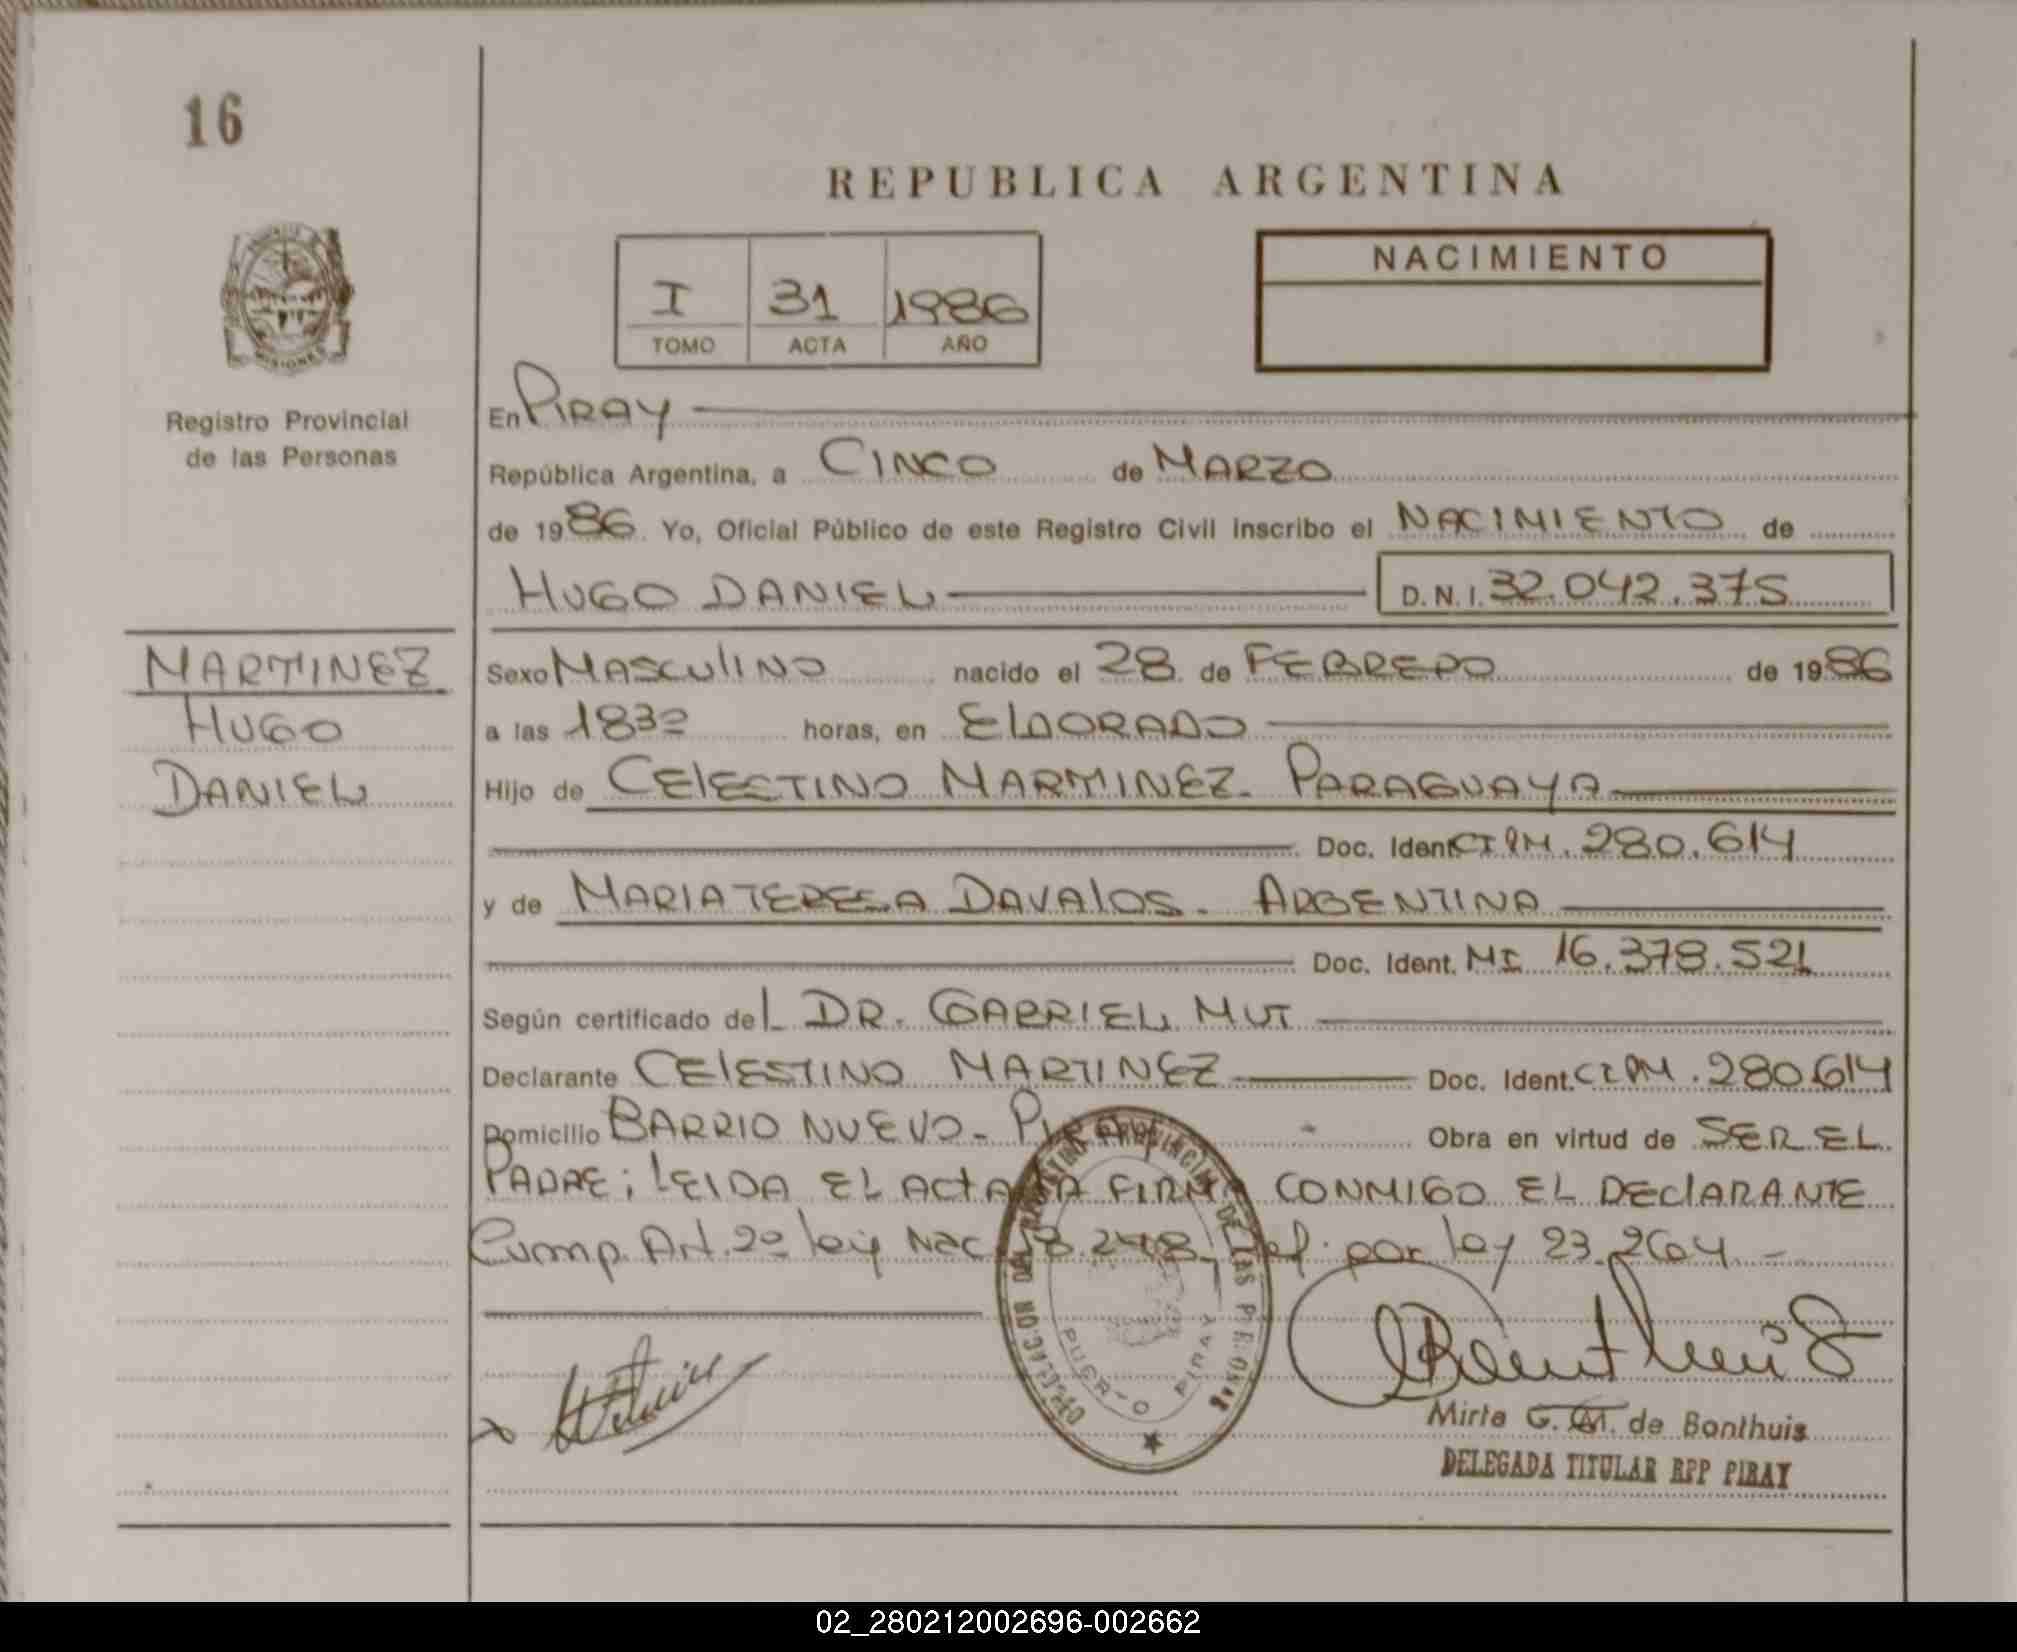 16
REPUBLICA ARGENTINA
MISIONES
Registro Provincial
de las Personas
I 31 1986
TOMO ACTA AÑO
NACIMIENTO
En PIRAY
República Argentina, a CINCO de MARZO
de 1986. Yo, Oficial Público de este Registro Civil inscribo el NACIMIENTO de
HUGO DANIEL D.N.I. 32.042.375
MARTINEZ
HUGO
DANIEL
Sexo MASCULINO nacido el 28 de FEBRERO de 1986
a las 1830 horas, en ELDORADO
Hijo de CELESTINO MARTINEZ. PARAGUAYA
Doc. Ident. CIPM. 280.614
y de MARIA TERESA DAVALOS. ARGENTINA
Doc. Ident. MI 16.378.521
Según certificado del DR. GABRIEL MUT
Declarante CELESTINO MARTINEZ Doc. Ident. CIPM. 280614
Domicilio BARRIO NUEVO - PIRAY Obra en virtud de SER EL
PADRE; LEIDA EL ACTA LA FIRMA CONMIGO EL DECLARANTE
Cump. Art. 2º ley Nac 18.248 por ley 23.264. -
PROVINCIAL DE LAS PERSONAS
PUERTO PIRAY
Mirta G. M. de Bonthuis
DELEGADA TITULAR RPP PIRAY
02_280212002696-002662